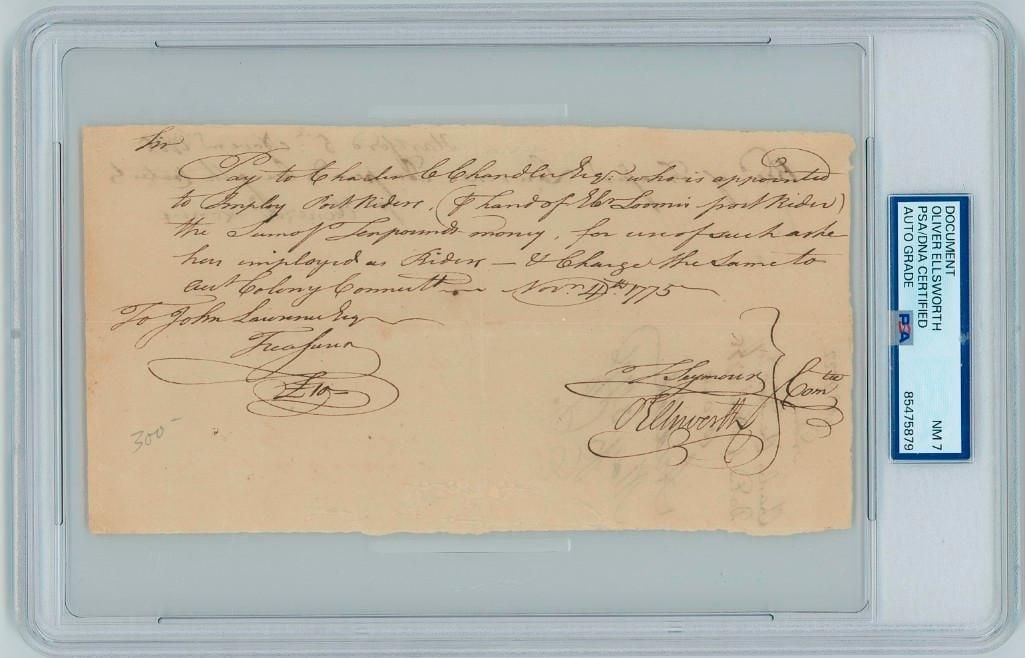 Sir
Pay to Charles C Chandler Esqr who is appointed
to Employ Post Riders, (⅌ hand of Eb'r Loomis post Rider)
the Sum of Ten pounds money, for use of such as he
has imployed as Riders — & Charge the Same to
acct Colony Connectt — Novr 4th 1775
To John Lawrence Esq
Treasurer
£10—
T Seymour
OEllsworth
Comtee
300-
DOCUMENT
OLIVER ELLSWORTH
PSA/DNA CERTIFIED
AUTO GRADE
PSA
NM 7
85475879